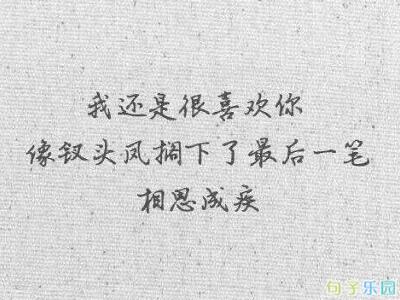 我还是很喜欢你
像钗头凤搁下了最后一笔
相思成疾
句子乐园